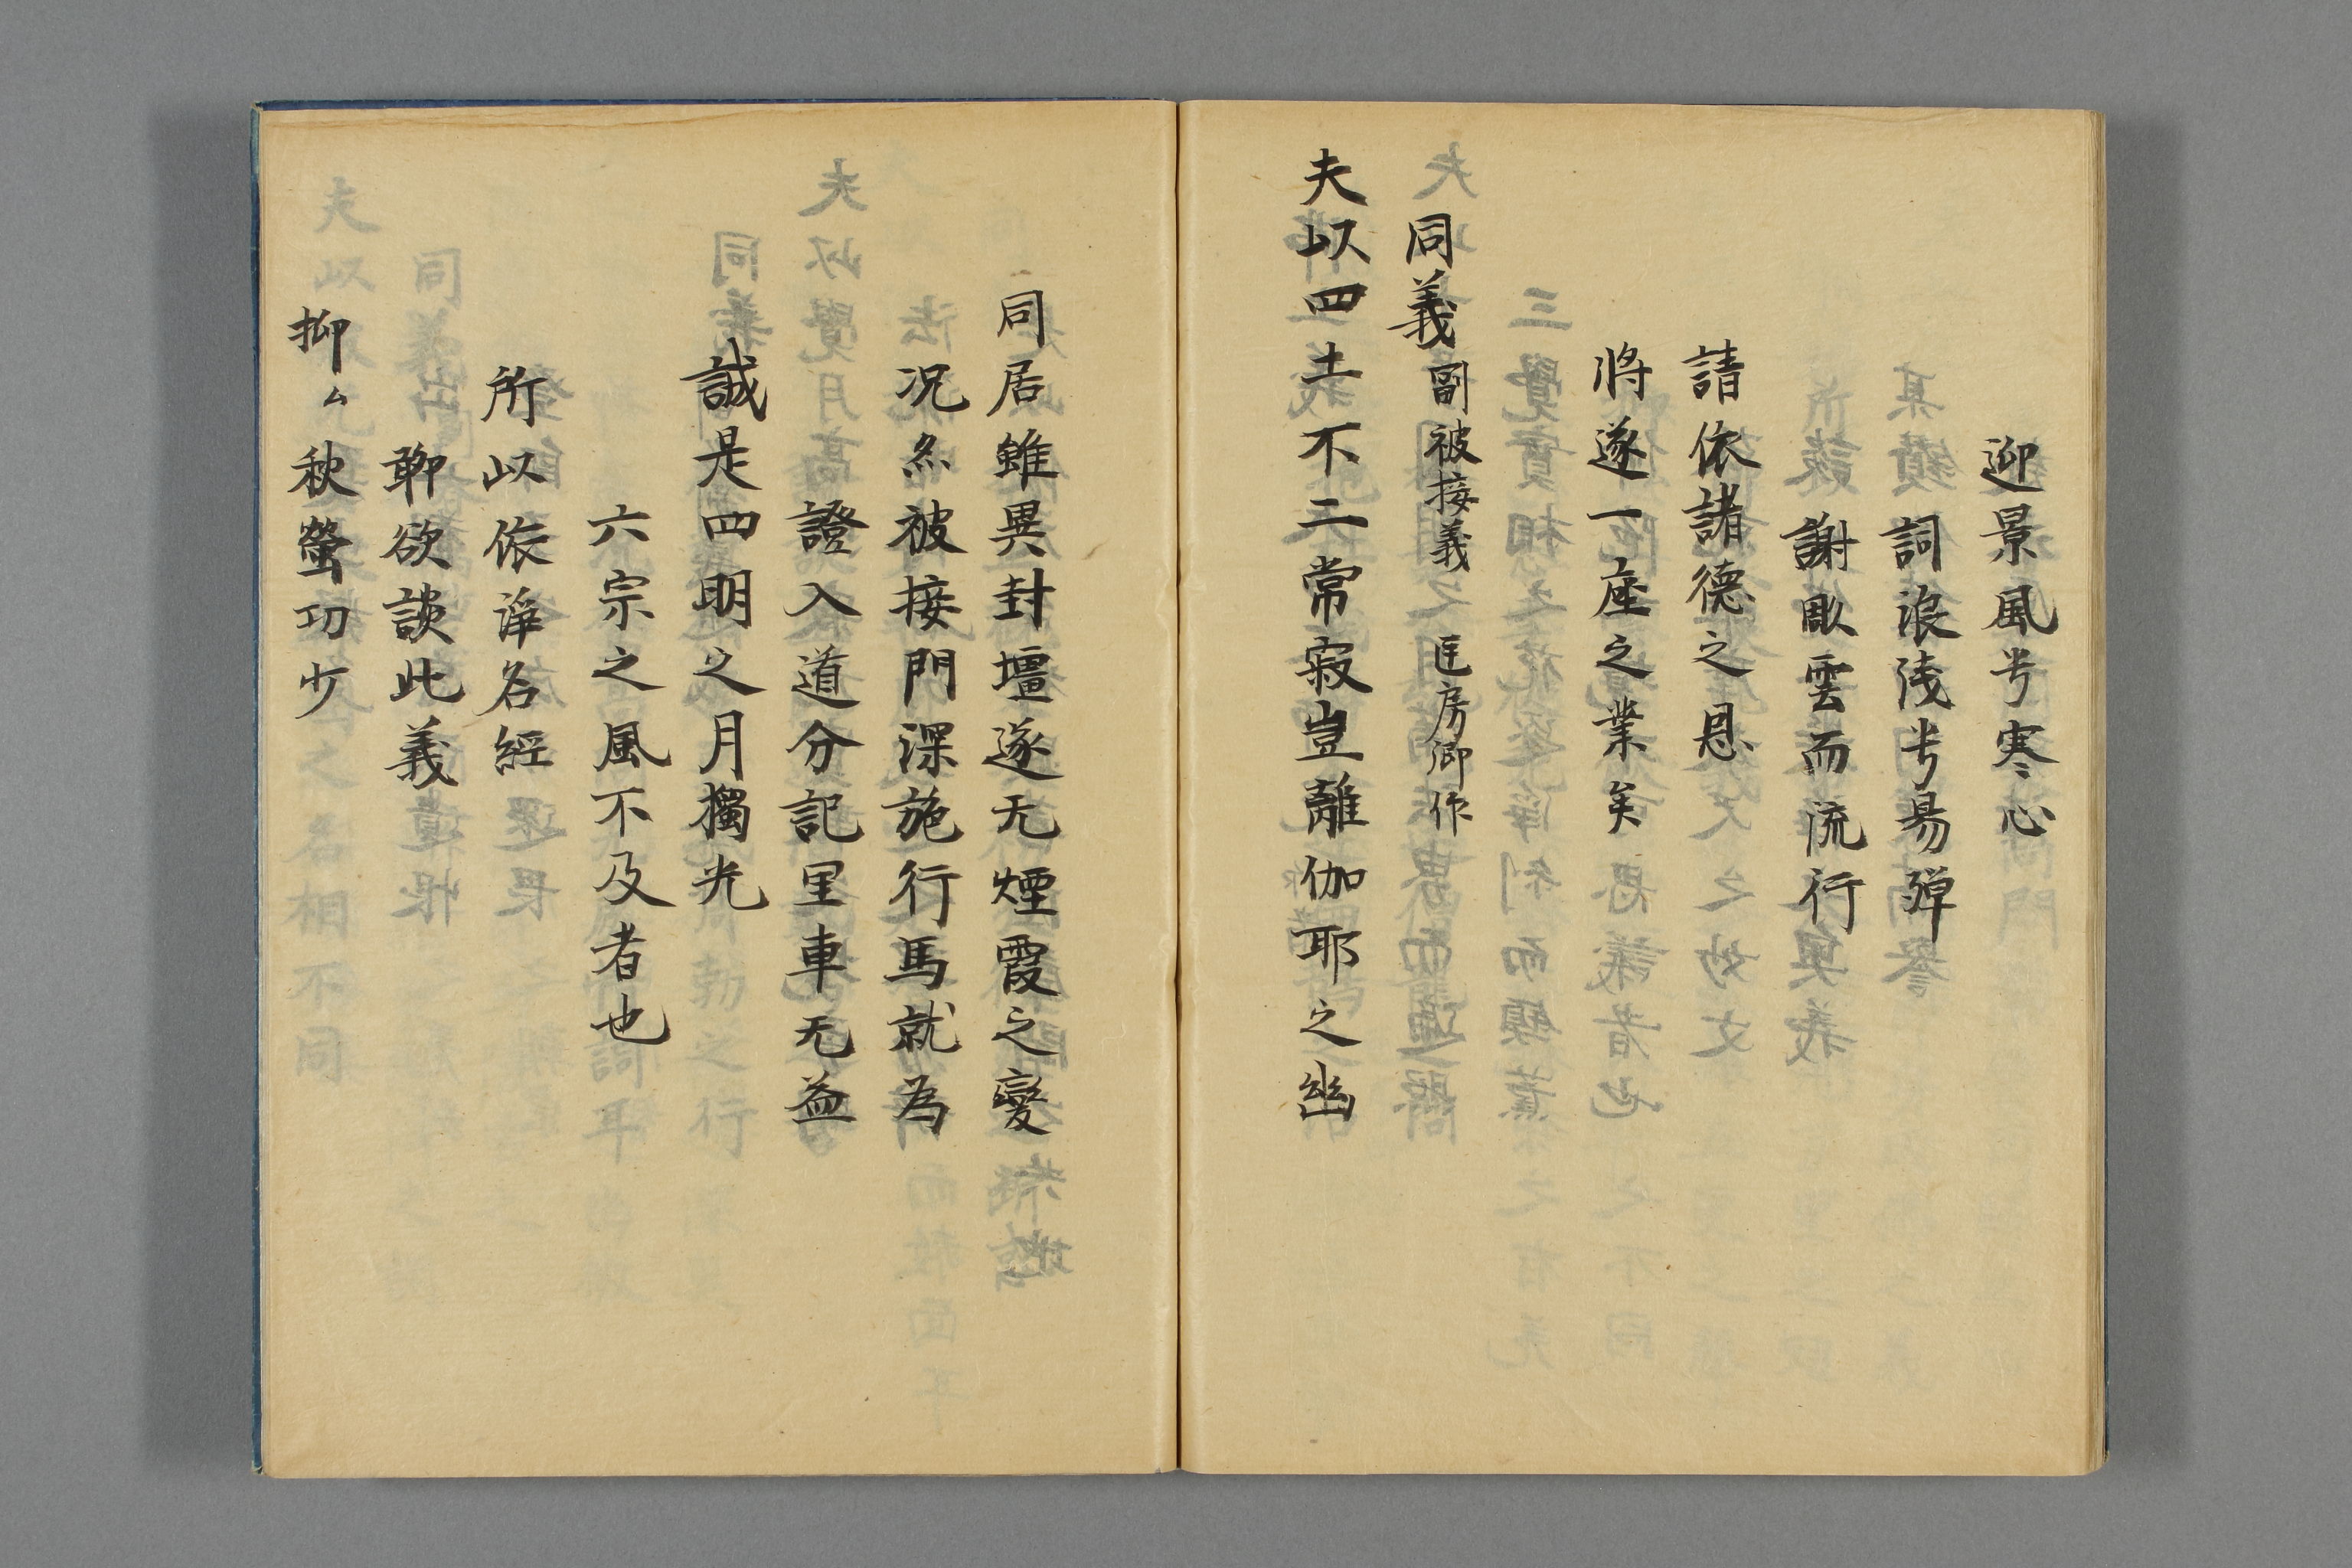 迎景風兮寒心
詞浪浅兮易殫
謝彫雲而流行
請依諸德之恩
將遂一座之業矣
同義 副被接義 匡房卿作
夫以四土不二常寂豈離伽耶之幽
同居雖異封壇遂无煙霞之變
况亦被接門深施行馬就為
證入道分記里車无益
誠是四明之月獨光
六宗之風不及者也
所以依淨名經
聊欲談此義
抑々秋螢功少